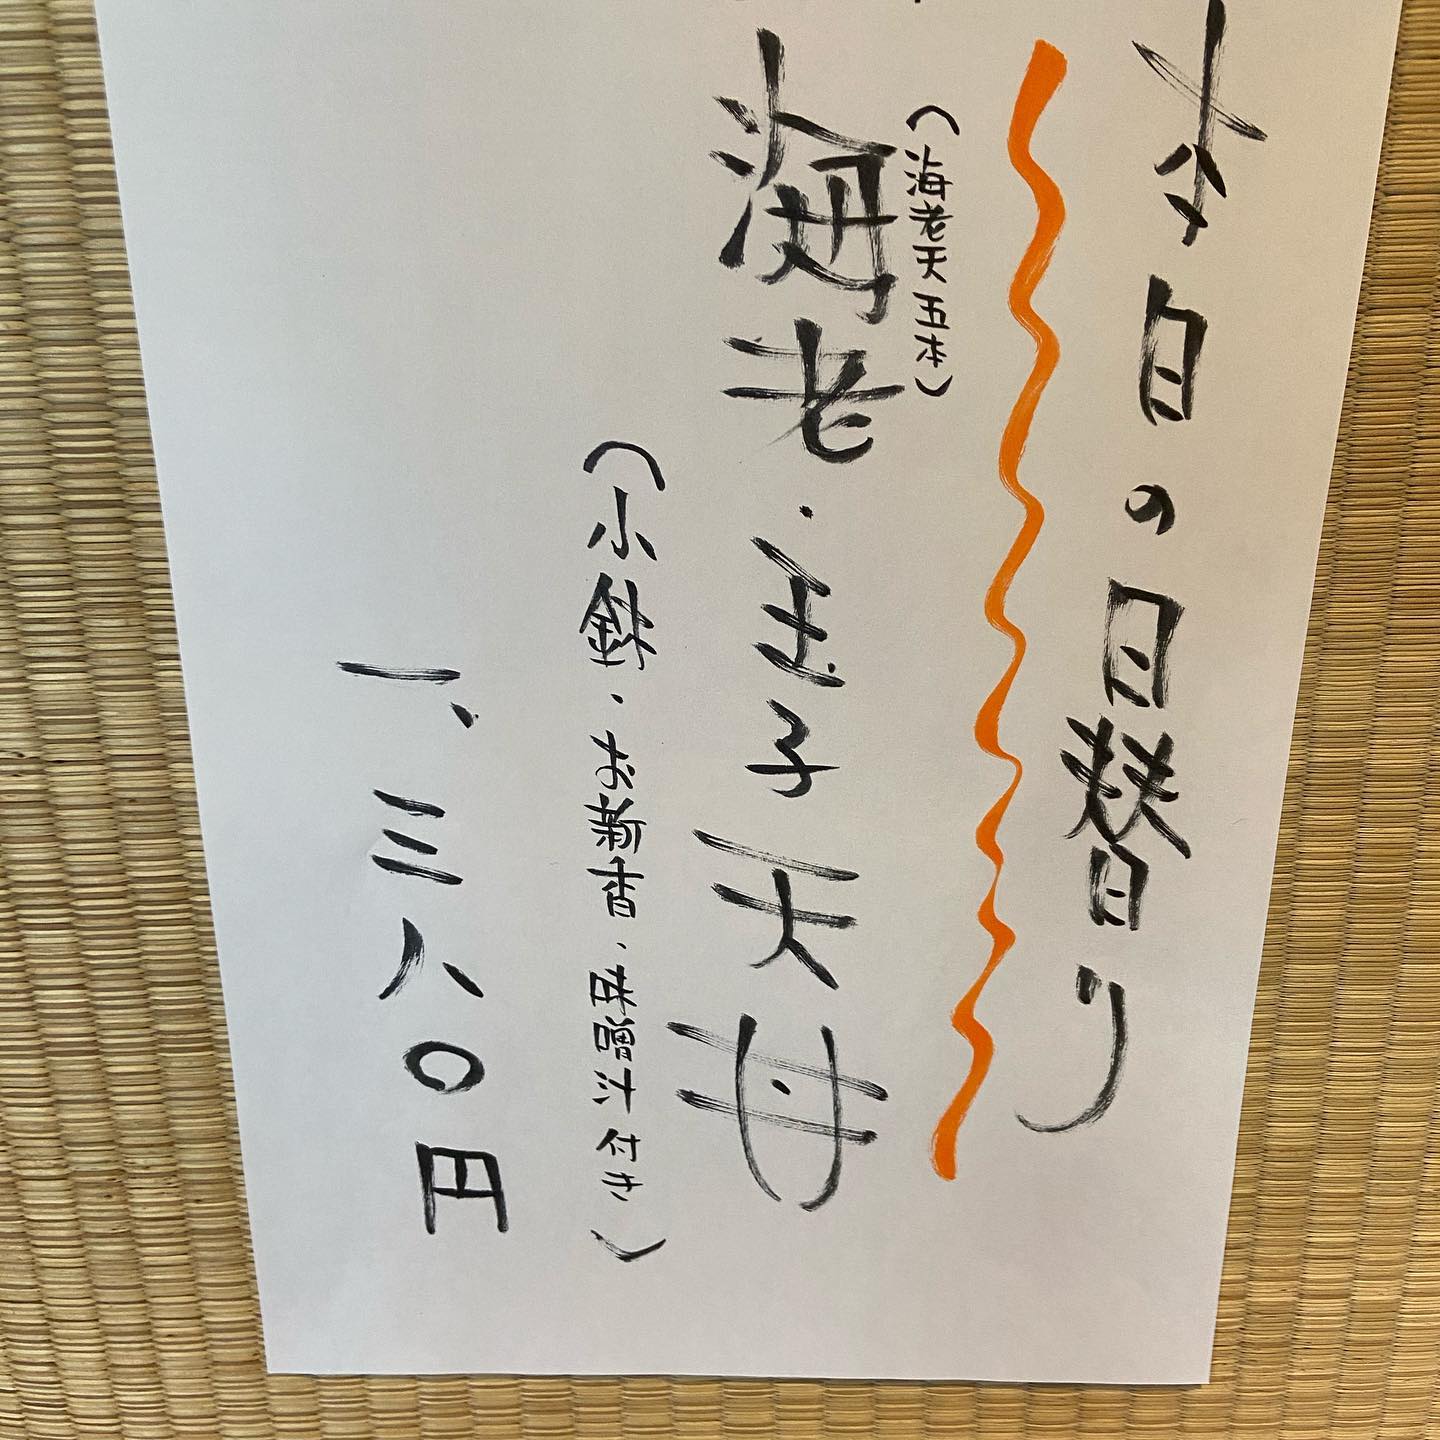 本日の日替り
(海老天五本)
海老・玉子天丼
(小鉢・お新香・味噌汁付き)
一、三八〇円